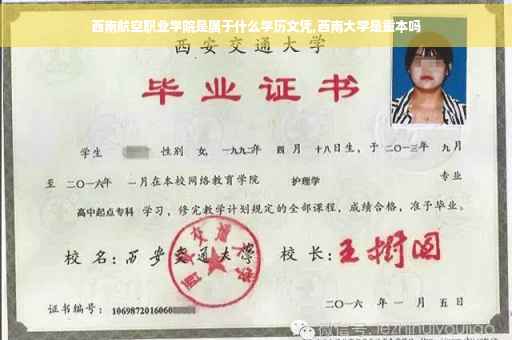 西南航空职业学院是属于什么学历文凭,西南大学是重本吗
西安交通大学
毕业证书
学生 性别 女,一九九二年 四 月 十八日生,于 二〇一三年 九月
至 二〇一六年 一月在本校网络教育学院 护理学 专业
高中起点专科 学习,修完教学计划规定的全部课程,成绩合格,准予毕业。
校 名:西安交通大学 校 长:王树国
西安交通大学
证书编号:1069872016060
二〇一六 年 一 月 五 日
微信号:jezhihuiyoujiao